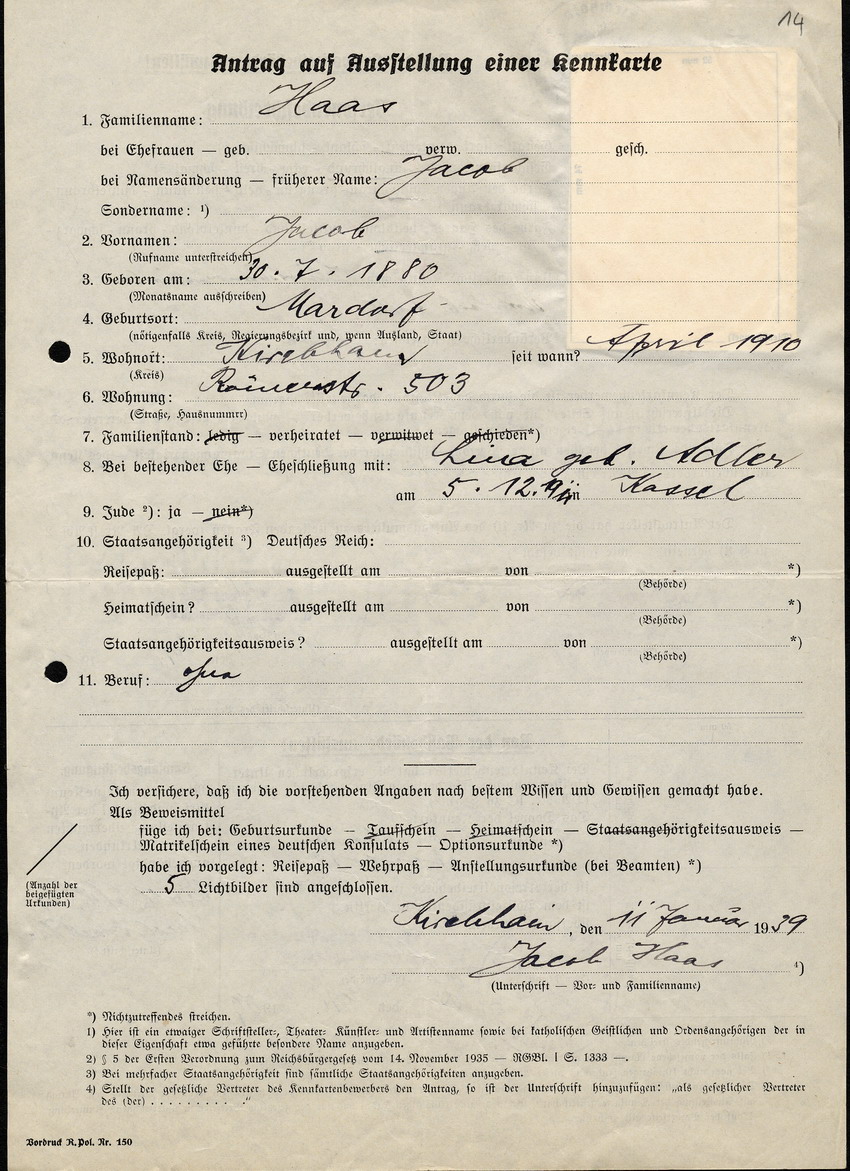 14
Antrag auf Ausstellung einer Kennkarte
1. Familienname: Haas
bei Ehefrauen — geb. verw. gesch.
bei Namensänderung — früherer Name: Jacob
Sondername: ¹)
2. Vornamen: Jacob
(Rufname unterstreichen)
3. Geboren am: 30. 7. 1880
(Monatsname ausschreiben)
4. Geburtsort: Mardorf
(nötigenfalls Kreis, Regierungsbezirk und, wenn Ausland, Staat)
5. Wohnort: Kirchhain seit wann? April 1910
(Kreis)
6. Wohnung: 503
(Straße, Hausnummrr)
7. Familienstand: ledig — verheiratet — verwitwet — geschieden*)
8. Bei bestehender Ehe — Eheschließung mit: Lina geb. Adler
am 5. 12. in Kassel
9. Jude ²): ja — nein*)
10. Staatsangehörigkeit ³) Deutsches Reich:
Reisepaß: ausgestellt am von *)
(Behörde)
Heimatschein? ausgestellt am von *)
(Behörde)
Staatsangehörigkeitsausweis? ausgestellt am von *)
(Behörde)
11. Beruf:
Ich versichere, daß ich die vorstehenden Angaben nach bestem Wissen und Gewissen gemacht habe.
Als Beweismittel
füge ich bei: Geburtsurkunde — Taufschein — Heimatschein — Staatsangehörigkeitsausweis —
Matrikelschein eines deutschen Konsulats — Optionsurkunde *)
habe ich vorgelegt: Reisepaß — Wehrpaß — Anstellungsurkunde (bei Beamten) *)
(Anzahl der
beigefügten
Urkunden)
5 Lichtbilder sind angeschlossen.
Kirchhain, den 11 Januar 1939
Jacob Haas ⁴)
(Unterschrift — Vor- und Familienname)
*) Nichtzutreffendes streichen.
1) Hier ist ein etwaiger Schriftsteller-, Theater- Künstler- und Artistenname sowie bei katholischen Geistlichen und Ordensangehörigen der in
dieser Eigenschaft etwa geführte besondere Name anzugeben.
2) § 5 der Ersten Verordnung zum Reichsbürgergesetz vom 14. November 1935 — RGBl. I S. 1333 —.
3) Bei mehrfacher Staatsangehörigkeit sind sämtliche Staatsangehörigkeiten anzugeben.
4) Stellt der gesetzliche Vertreter des Kennkartenbewerbers den Antrag, so ist der Unterschrift hinzuzufügen: „als gesetzlicher Vertreter
des (der) . . . . . . . . . ."
Vordruck R.Pol. Nr. 150